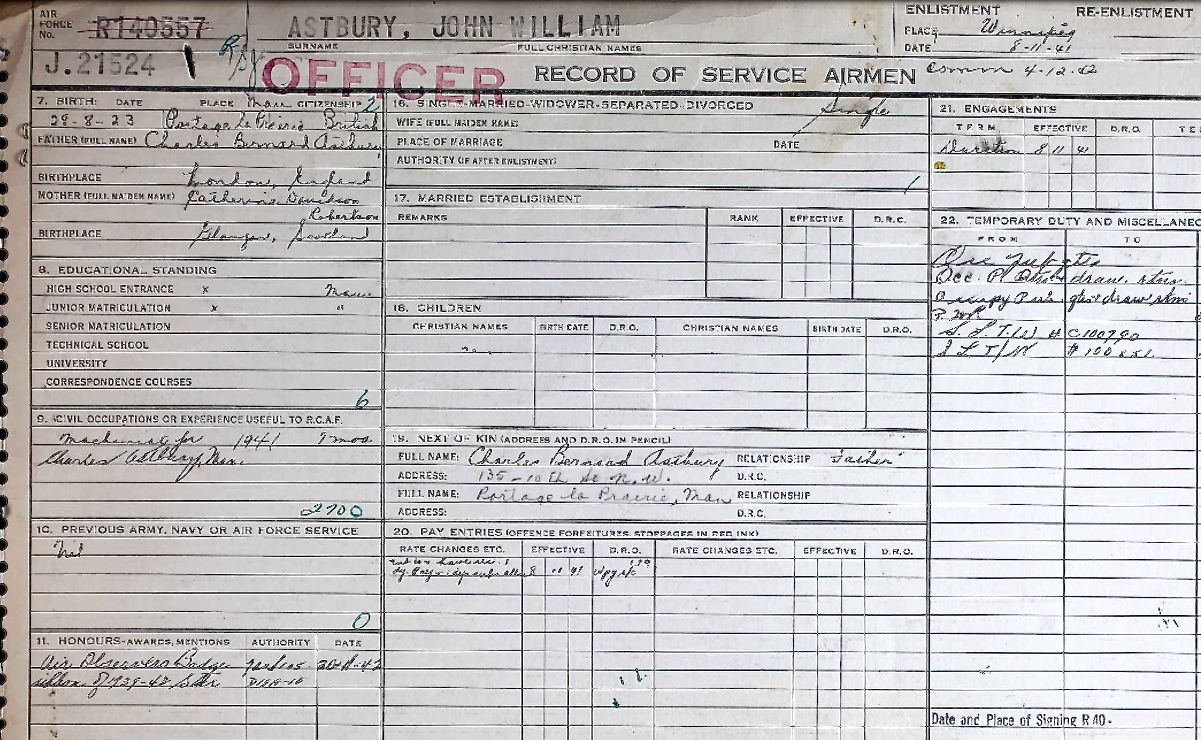 AIR FORCE NO. R140557
ASTBURY, JOHN WILLIAM
SURNAME FULL CHRISTIAN NAMES
ENLISTMENT RE-ENLISTMENT
PLACE Winnipeg
DATE 8-11-41
J.21524
OFFICER
RECORD OF SERVICE AIRMEN
Comm 4-12-42
7. BIRTH: DATE PLACE Man CITIZENSHIP 2
28-8-23 Portage la Prairie British
FATHER (FULL NAME) Charles Bernard Astbury
BIRTHPLACE London, England
MOTHER (FULL MAIDEN NAME) Catherine Davidson
Robertson
BIRTHPLACE Glasgow, Scotland
8. EDUCATIONAL STANDING
HIGH SCHOOL ENTRANCE x Man.
JUNIOR MATRICULATION x "
SENIOR MATRICULATION
TECHNICAL SCHOOL
UNIVERSITY
CORRESPONDENCE COURSES
6
9. CIVIL OCCUPATIONS OR EXPERIENCE USEFUL TO R.C.A.F.
Machinist for 1941 7 mos.
Charles Astbury, Man.
2700
10. PREVIOUS ARMY, NAVY OR AIR FORCE SERVICE
Nil
0
11. HONOURS-AWARDS, MENTIONS AUTHORITY DATE
Air Observers Badge
ribbon of 1939-43 Star
16. SINGLE-MARRIED-WIDOWER-SEPARATED-DIVORCED Single
WIFE (FULL MAIDEN NAME)
PLACE OF MARRIAGE DATE
AUTHORITY (OF AFTER ENLISTMENT)
17. MARRIED ESTABLISHMENT
REMARKS RANK EFFECTIVE D.R.O.
18. CHILDREN
CHRISTIAN NAMES BIRTH DATE D.R.O. CHRISTIAN NAMES BIRTH DATE D.R.O.
19. NEXT OF KIN (ADDRESS AND D.R.O. IN PENCIL)
FULL NAME: Charles Bernard Astbury RELATIONSHIP "Father"
ADDRESS: 135-10th St N.W. D.R.O.
FULL NAME: Portage la Prairie, Man RELATIONSHIP
ADDRESS: D.R.O.
20. PAY ENTRIES (OFFENCE FORFEITURES, STOPPAGES IN RED INK)
RATE CHANGES ETC. EFFECTIVE D.R.O. RATE CHANGES ETC. EFFECTIVE D.R.O.
8 11 41
21. ENGAGEMENTS
TERM EFFECTIVE D.R.O.
Duration 8 11 41
22. TEMPORARY DUTY AND MISCELLANEO
FROM TO
S.L.T./W # C100790
Date and Place of Signing R 40.